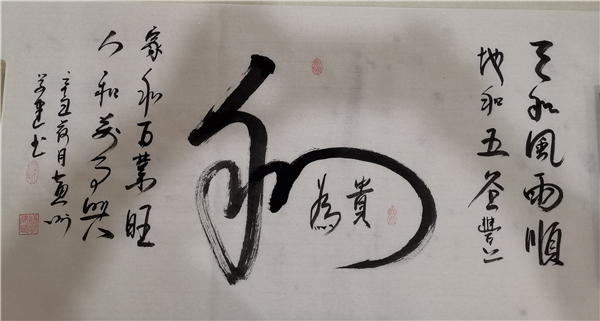 天和風雨順
地和五谷豐
和
為貴
家和百業旺
人和萬事興
辛丑荷月 黄州
万建书